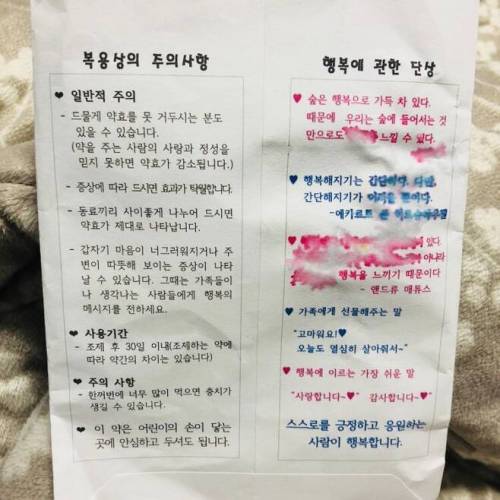 복용상의 주의사항
❤ 일반적 주의
- 드물게 약효를 못 거두시는 분도
있을 수 있습니다.
(약을 주는 사람의 사랑과 정성을
믿지 못하면 약효가 감소됩니다.)
- 증상에 따라 드시면 효과가 탁월합니다.
- 동료끼리 사이좋게 나누어 드시면
약효가 제대로 나타납니다.
- 갑자기 마음이 너그러워지거나 주
변이 따뜻해 보이는 증상이 나타
날 수 있습니다. 그때는 가족들이
나 생각나는 사람들에게 행복의
메시지를 전하세요.
❤ 사용기간
- 조제 후 30일 이내(조제하는 약에
따라 약간의 차이는 있습니다)
❤ 주의 사항
- 한꺼번에 너무 많이 먹으면 충치가
생길 수 있습니다.
❤ 이 약은 어린이의 손이 닿는
곳에 안심하고 두셔도 됩니다.
행복에 관한 단상
♥ 숲은 행복으로 가득 차 있다.
때문에 우리는 숲에 들어서는 것
만으로도 느낄 수 있다.
♥ 행복해지기는 간단하다. 다만,
간단해지기가
-에키르트
♥ 있다.
아니라
행복을 느끼기 때문이다
- 앤드류 매튜스
♥ 가족에게 선물해주는 말
"고마워요!♥
오늘도 열심히 살아줘서~"
♥ 행복에 이르는 가장 쉬운 말
"사랑합니다~♥ 감사합니다~♥"
스스로를 긍정하고 응원하는
사람이 행복합니다.